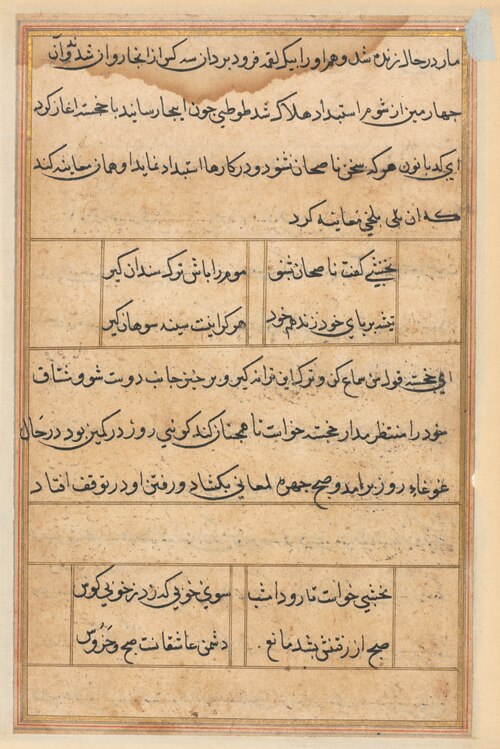 مار در حال زنده شد و هم او را بیک لقمه فرو برد ان سه کس از انجا روان شدند و آن
چهارمین از شومر استبداد هلاک شد طوطی چون اینجا رسانید با خجسته اغاز کرد
ای کدبانو هر که سخن ناصحان نشنود و در کارها استبداد نماید او همان معاینه کند
که ان بلخی معاینه کرد
نخشبی گفت ناصحان بشنو
موم را باش ترک سندان گیر
تیشه بر پای خود زند هم خود
هر کرا نیست سینه سوهان گیر
ای خجسته قول من سماع کن و ترک این فراند گیر و برخیز جانب دوست شو و مشتاق
خود را منتظر مدار خجسته خواست تا همچنان کند کوئی روز در کمین بود در حال
غوغاء روز برامد و صبح چهره لمعانی بکشاد و رفتن او در توقف افتاد
نخشبی خواست تا رود امشب
سوی خوبی که زد ز خوبی کوس
صبح از رفتنش بشد مانع
دشمن عاشقانست صبح و خروس